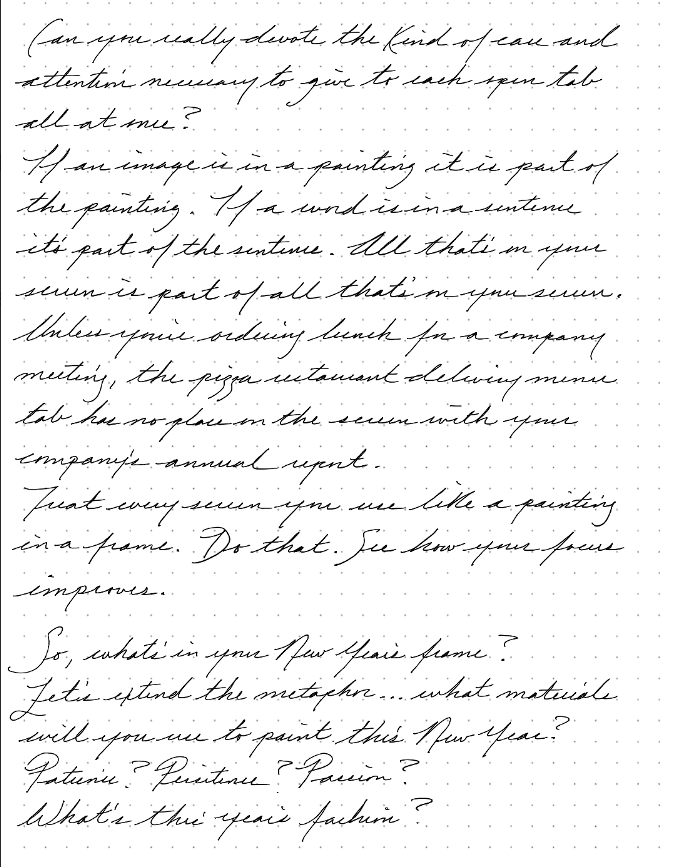 Can you really devote the kind of care and
attention necessary to give to each open tab
all at once?
If an image is in a painting it is part of
the painting. If a word is in a sentence
it's part of the sentence. All that's on your
screen is part of all that's on your screen.
Unless you're ordering lunch for a company
meeting, the pizza restaurant delivery menu
tab has no place on the screen with your
company's annual report.
Treat every screen you use like a painting
in a frame. Do that. See how your focus
improves.
So, what's in your New Year's frame?
Let's extend the metaphor... what materials
will you use to paint this New Year?
Patience? Persistence? Passion?
What's this year's fashion?